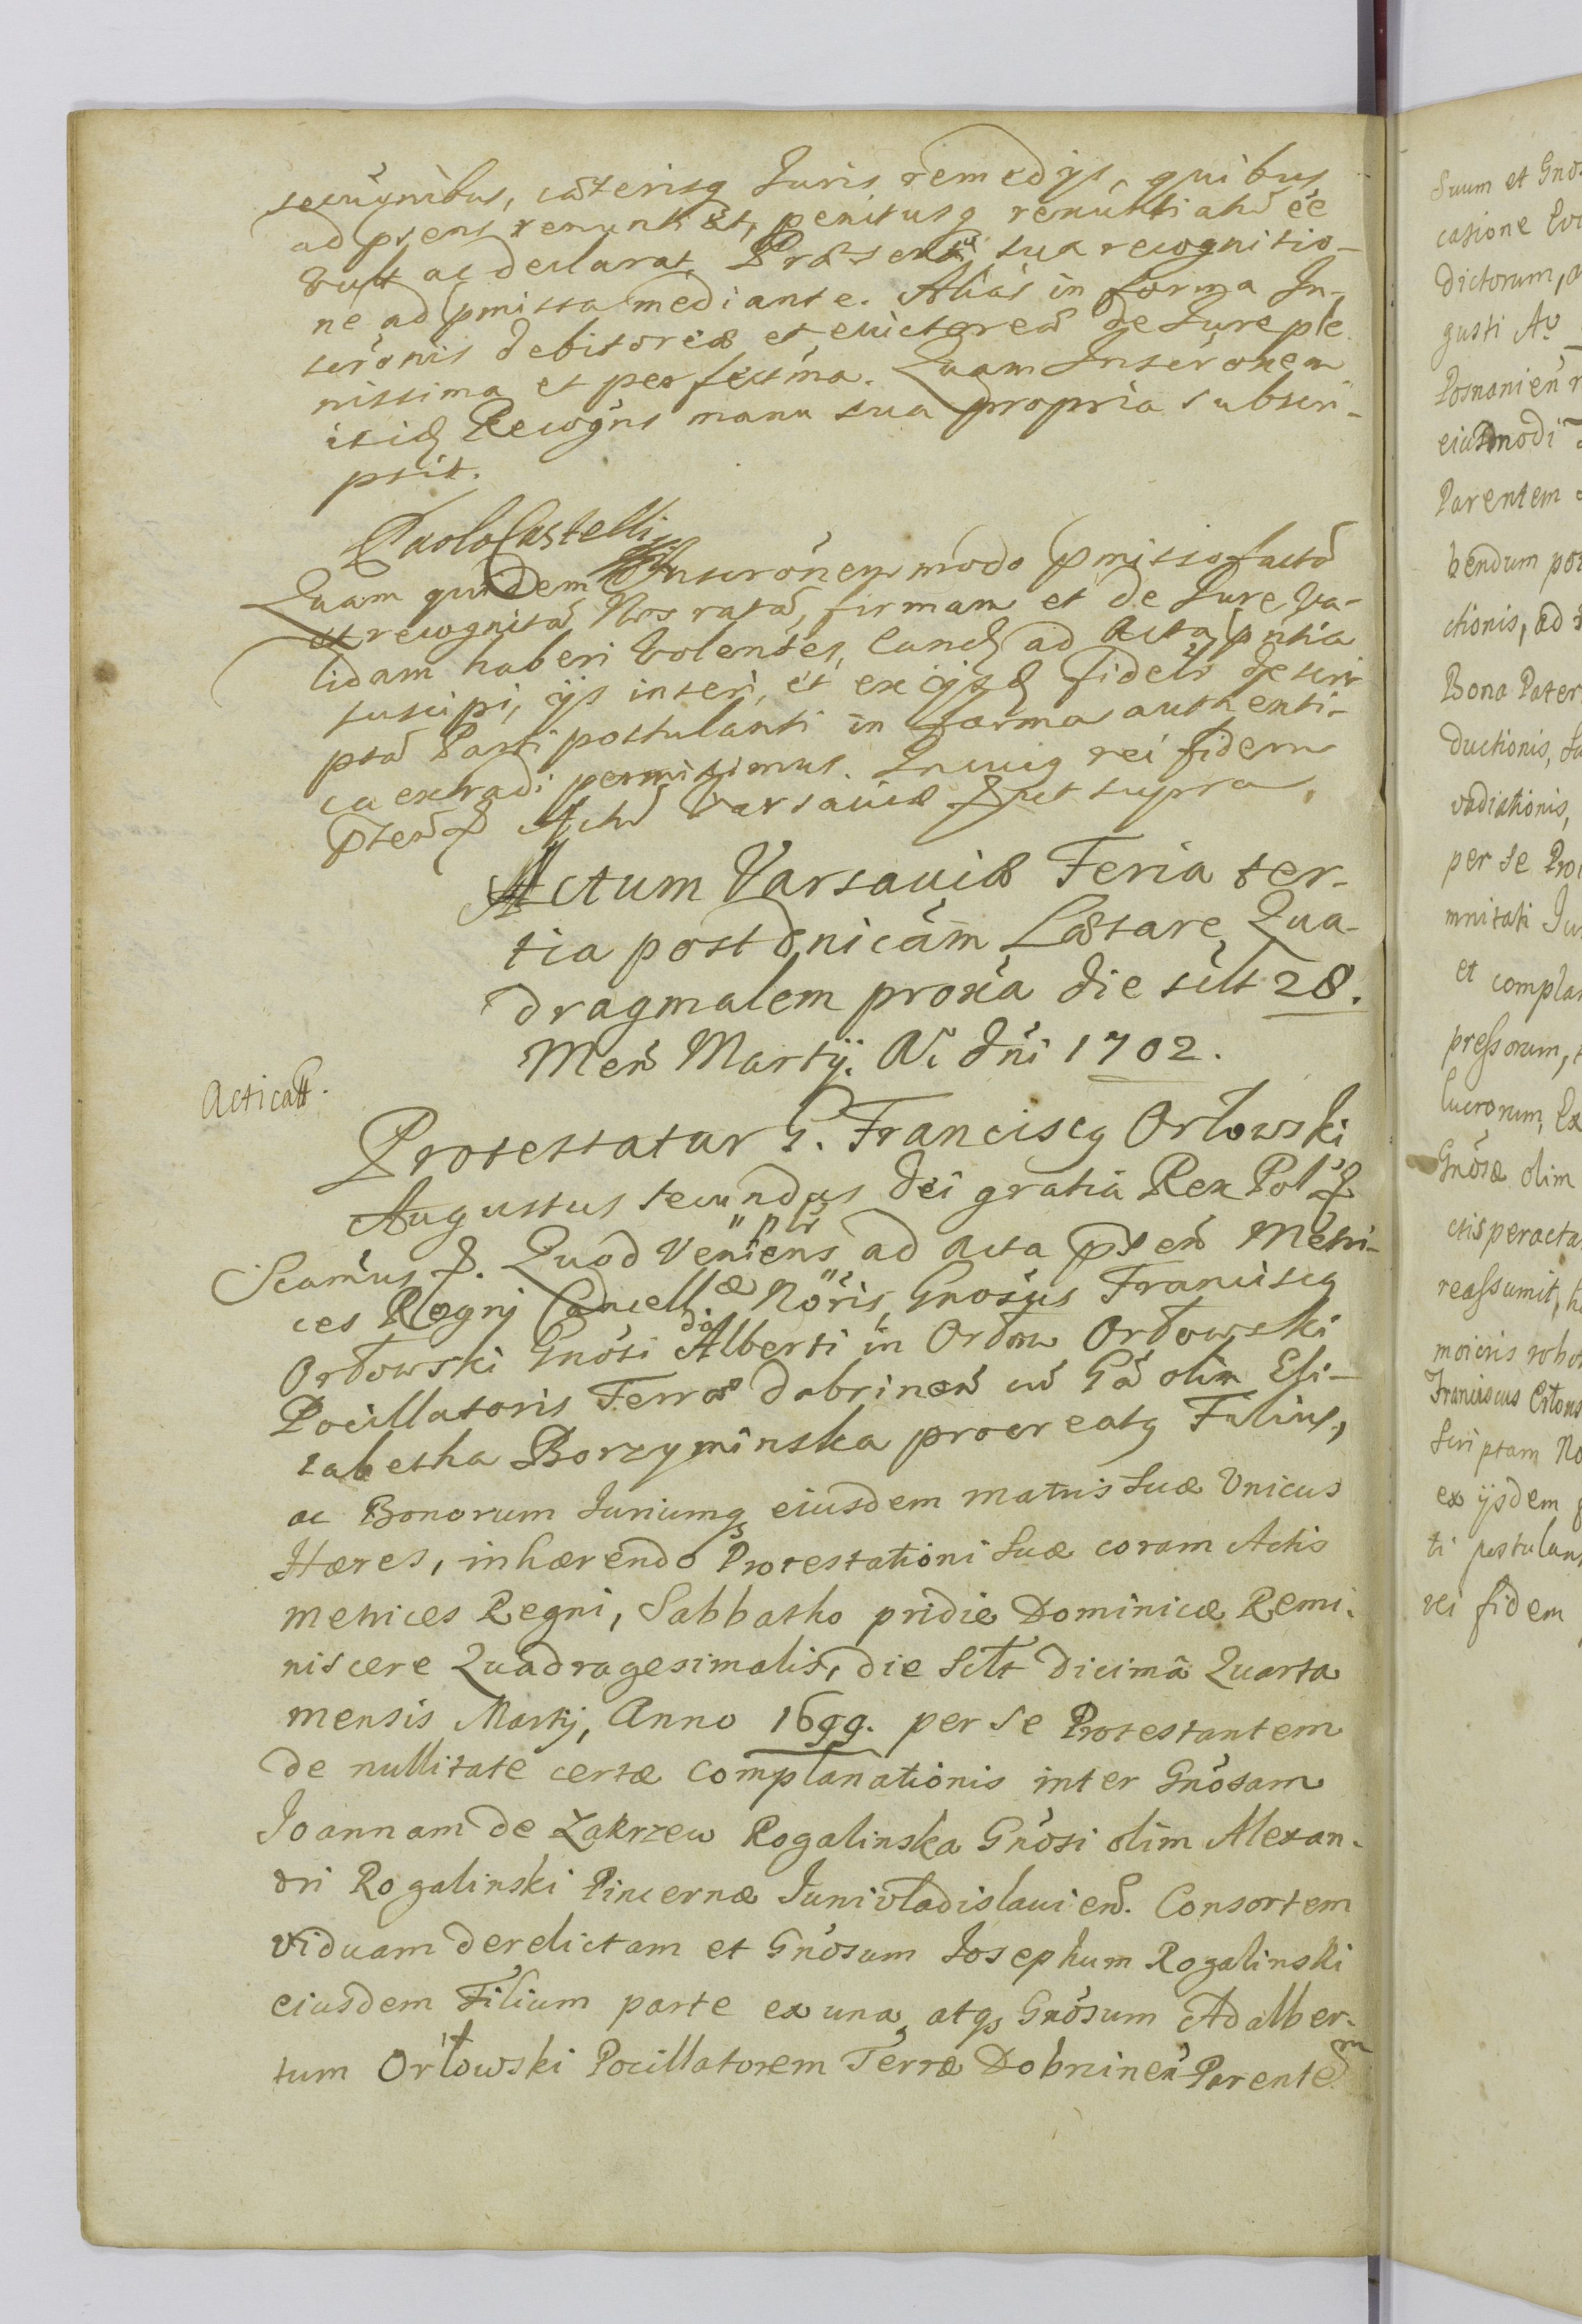 secuōnibus, cæterisq Juris remedijs, quibus
ad psens renuntiat, penitusq renuntiatū ēe
vult ac declarat, Præsenti sua recognitio-
ne ad pmissa mediante. Alias in forma In-
scrōnis debitoriæ et evictoreā de Jure ple
nissima et perfectma. Quam Inscrōnem
isid Recogns manu sua propria subscri-
psit.
Paolo Castelli
Quam quidem Inscrōnem modo pmisso factā
et recognitā Nos ratā, firmam et de Jure va-
lidam haberi volentes, Eand ad Acta pntia
suscipi, ijs inseri, et ex ijsd fidelr descri
ptā Parti postulanti in forma authenti-
ca extradi permisimus. In cuiq rei fidem
Actū Varsaviæ ut supra,
Actum Varsaviæ Feria ter-
tia post dnicam Lætare Qua-
dragmalem proxa die scilt 28.
Men Martij. Ao dni 1702.
Acticatt.
Protestatur G. Franciscq Orłowski
Augustus secundus Dei gratia Rex Pol
Scamus. Quod Veniens plr ad acta psen Metri-
ces Regni Cancellæ Nōris, Gnosus Franciscq
Orłowski Gnosi Alberti in Orłow Orłowski
Pocillatoris Terræ dobrinen cū Gā olim Eli-
zabetha Borzyminska procreatq Filius,
ac Bonorum Juriumq eiusdem matris suæ Unicus
Hæres, inhærendo Protestationi suæ coram Actis
metrices Regni, Sabbatho pridie Dominicæ Remi-
niscere Quadragesimalis, die scilt dicima Quarta
mensis Martij, Anno 1699. per se Protestantem
de nullitate certæ complanationis inter Gnōsam
Joannam de Zakrzew Rogalinska Gnōsi olim Alexan-
dri Rogalinski Pincernæ Junivladislavien. Consortem
viduam derelictam et Gnōsum Josephum Rogalinski
eiusdem Filium parte ex una, atq Gnōsum Adalber-
tum Orłowski Pocillatorem Terræ Dobrinen Parentem
Suum et Gnos
casione
dictorum,
gusti Ao
Posnanien
eiusmodi
Parentem
bendum
ctionis, ad
Bona Pater
ductionis,
vadiationis,
per se
mnitati
et complan
pressorum,
lucrorum, Ex
Gnōsæ olim
ctis peracta
reassumit,
Franciscus
Scriptam No
ex ijsdem
ti postulan
rei fidem